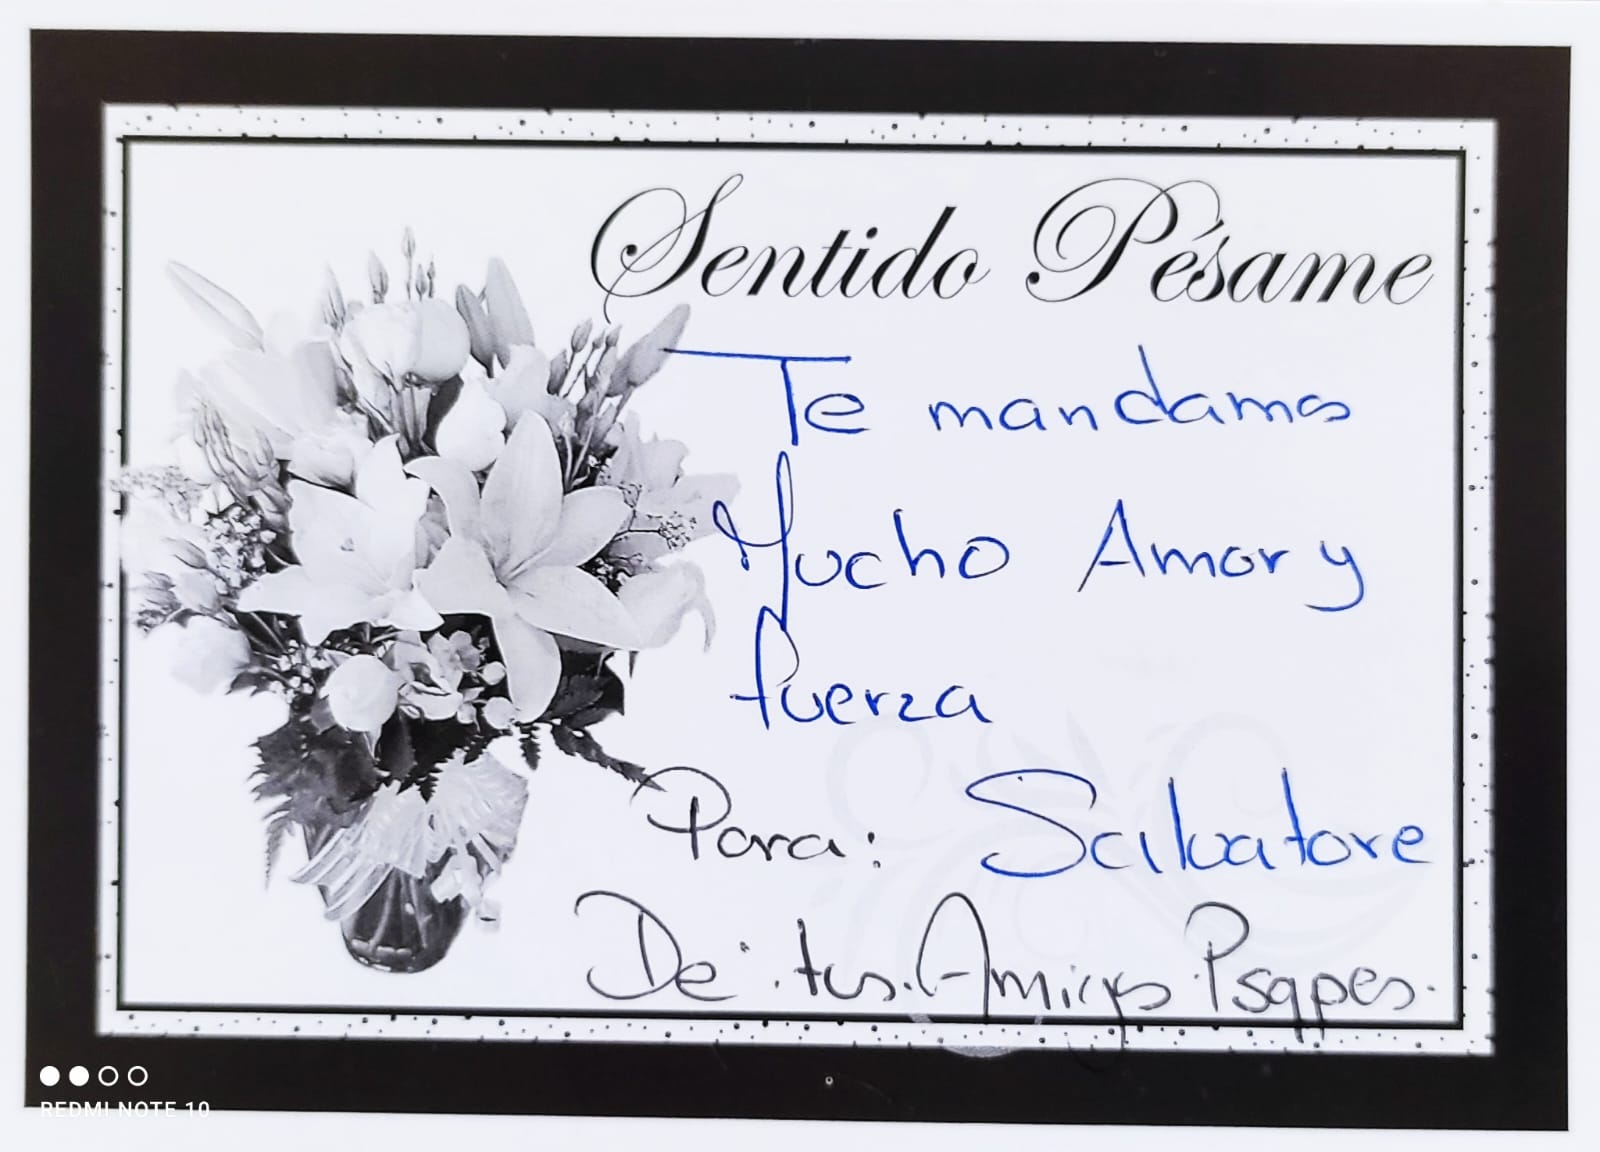 Sentido Pésame
Te mandamos
Mucho Amor y
fuerza
Para: Salvatore
De: tus Amigos Psqpes.
REDMI NOTE 10